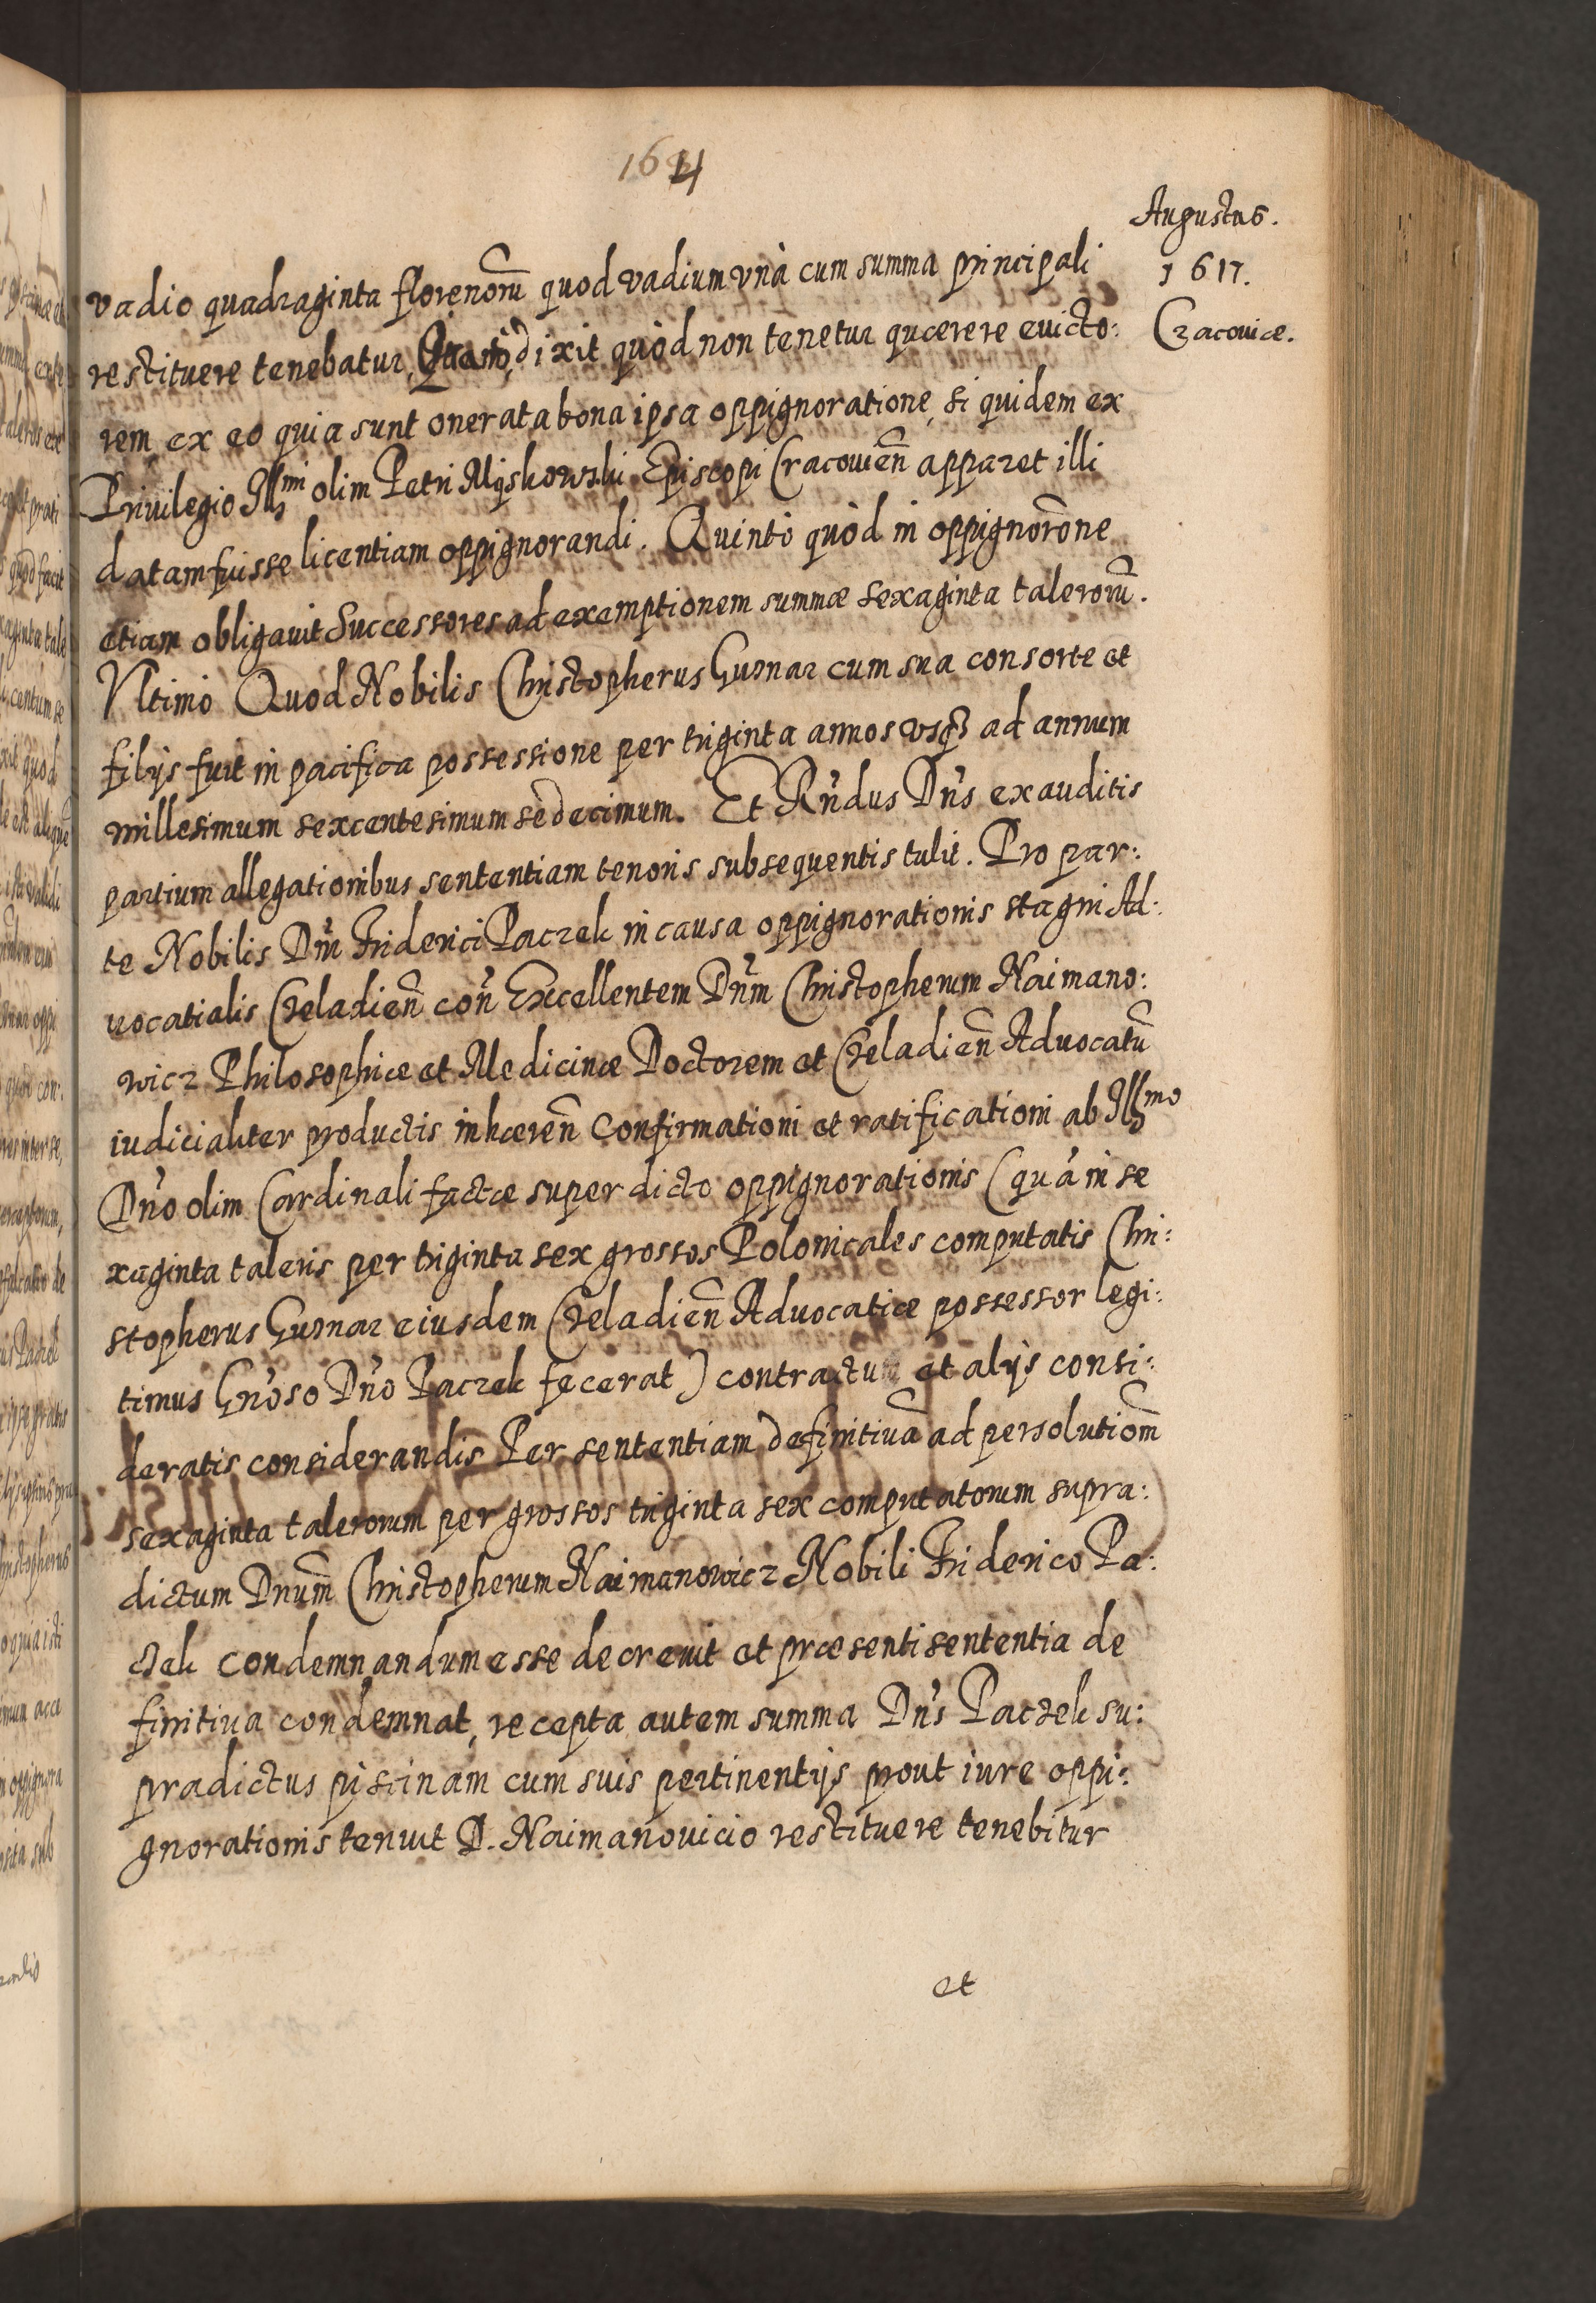 164
Augustus.
1617.
Cracouiæ.
vadio quadraginta florenorũ quod vadium vnà cum summa principali
restituere tenebatur, Quarto dixit quòd non tenetur quærere euicto:
rem, ex eo quia sunt onerata bona ipsa oppignoratione, si quidem ex
Priuilegio Illmi olim Petri Myskowski Episcopi Cracouien̄ apparet illi
datam fuisse licentiam oppignorandi. Quintò quòd in oppignorõne
etiam obligauit Successores ad exemptionem summæ sexaginta talerorũ.
Vltimò Quod Nobilis Christopherus Gusnar cum sua consorte et
filijs fuit in pacifica possessione per triginta annos vsq3 ad annum
millesimum sexcentesimum sedecimum. Et Rn̄dus Dn̄s exauditis
partium allegationibus sententiam tenoris subsequentis tulit. Pro par:
te Nobilis Dn̄i Friderici Paczek in causa oppignorationis stagni Ad:
uocatialis Czeladien̄ con̄ Excellentem Dn̄m Christopherum Naimano:
wicz Philosophiæ et Medicinæ Doctorem et Czeladien̄ Aduocatũ
iudicialiter productis inhæren̄ Confirmationi et ratificationi ab Illmo
Dn̄o olim Cardinali factæ super dicto oppignorationis (quã in se
xaginta taleris per triginta sex grossos Polonicales computatis Chri:
stopherus Gusnar eiusdem Czeladien̄ Aduocatiæ possessor legi:
timus Gn̄oso Dn̄o Paczek fecerat) contractu et alijs consi:
deratis considerandis Per sententiam definitiuã ad persolutiom̄
sexaginta talerorum per grossos triginta sex computatorum supra:
dictum Dnum̄ Christopherum Naimanowicz Nobili Friderico Pa:
czek condemnandum esse decreuit et præsenti sententia de
finitiua condemnat, recepta autem summa Dn̄s Paczek su:
pradictus piscinam cum suis pertinentijs prout iure oppi:
gnorationis tenuit D. Naimanouicio restituere tenebitur
et